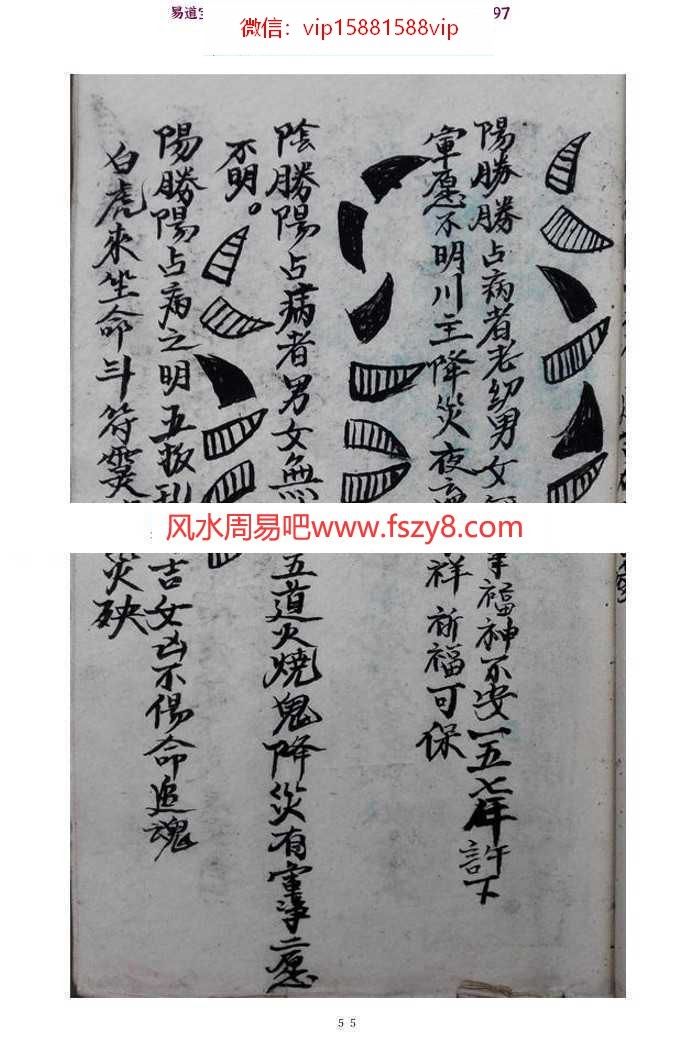 易道宝
97
微信：vip15881588vip
陽勝勝占病者老幼男女
事福神不安一五七年許下
愿不明川主降災夜
祥祈福可保
陰勝陽占病者男女無
五道火燒鬼降災有
二愿
不明。
陽勝陽占病之明五
吉女凶不傷命追魂
白虎來坐命斗符
災殃
风水周易吧www.fszy8.com
55